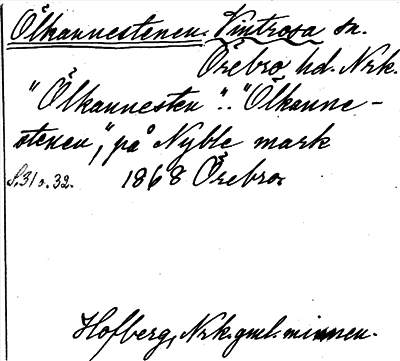 Ölkannestenen. Vintrosa sn.
Örebro hd. Nrk.
"Ölkannesten". "Ölkanne-
stenen", på Nyble mark
S. 31 o. 32. 1868 Örebro.
Hofberg, Nrk. gml. minnen.